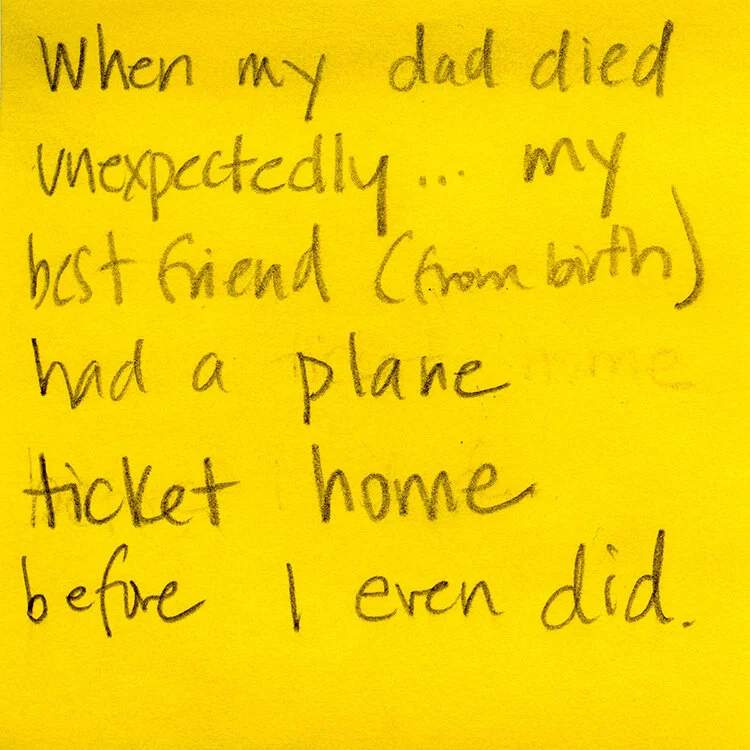 When my dad died
unexpectedly... my
best friend (from birth)
had a plane
ticket home
before I even did.